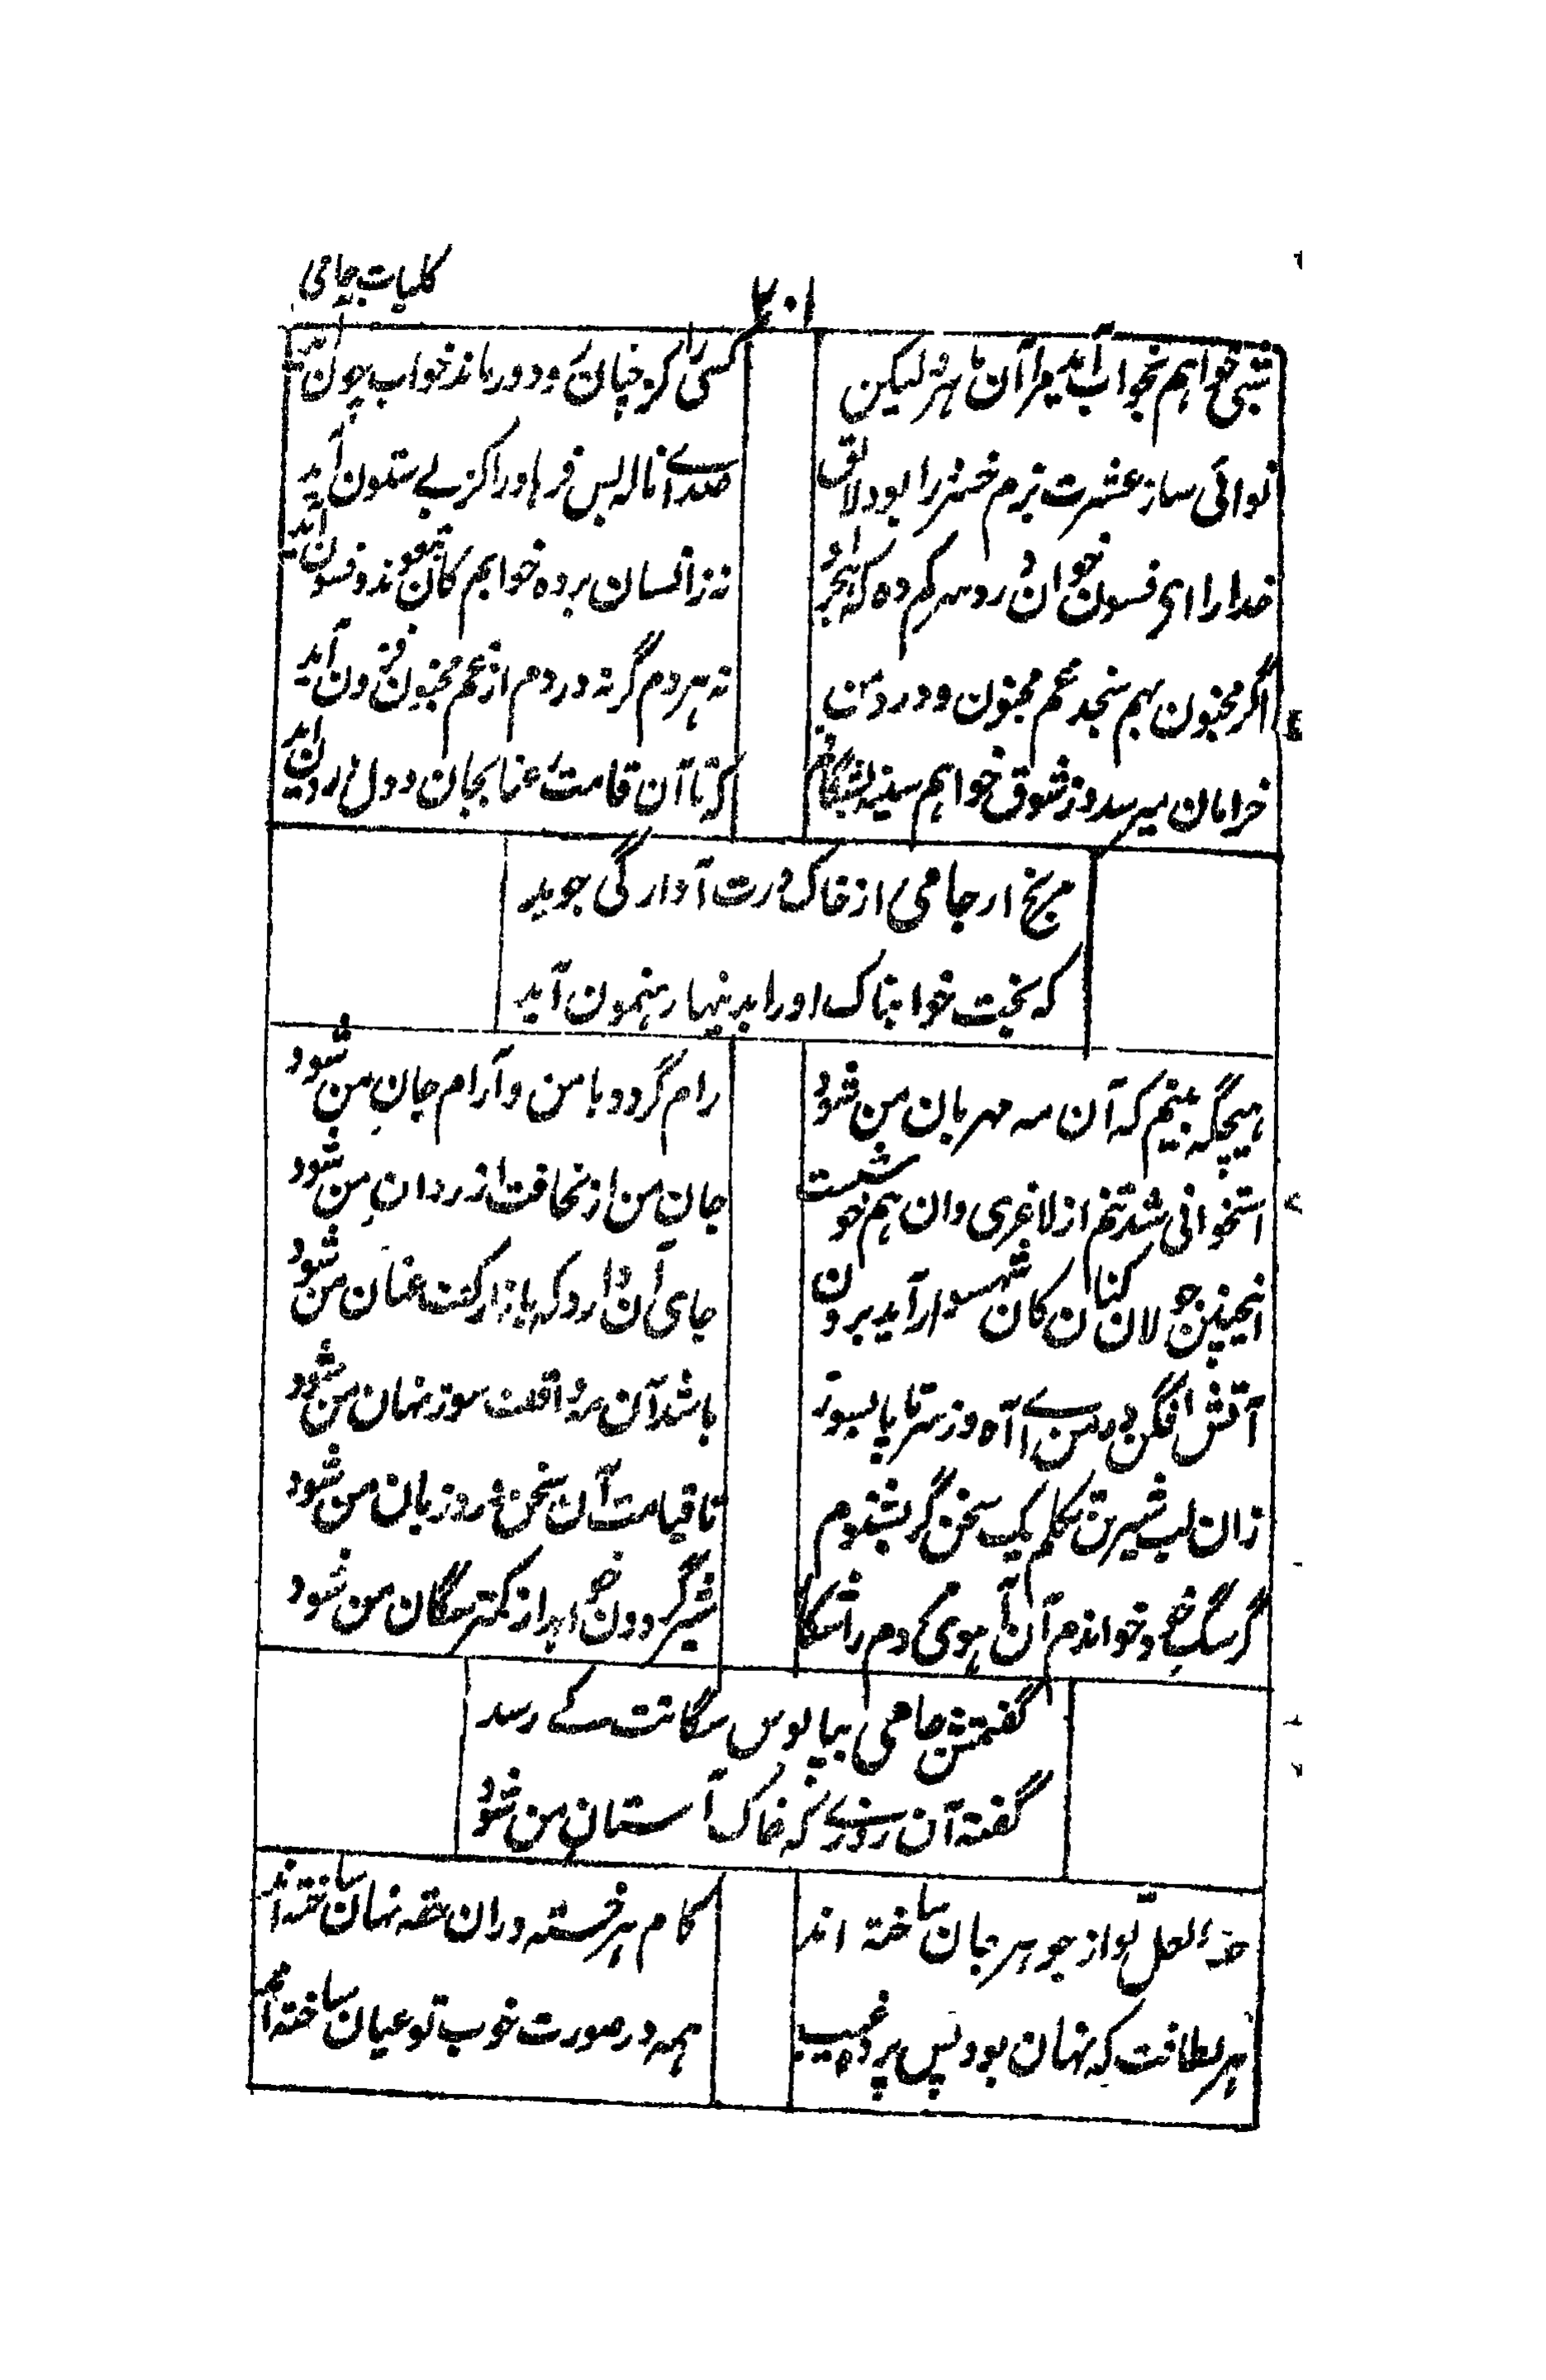 کلیات جامی
۲۰۱
شبی خواهم بخواب آید مرا آن ماهرو لیکن
کسی را کز چنان رو دور ماند خواب چون آید
نوائی ساز عشرت بزم خسرو را بود لائق
صدائے ناله بس فرهاد را کز بے ستون آید
خدارا ای فسون خوان دردسر کم ده که بیمار او
نه زانسان برده خوابم کان بتعویذ و فسون آید
اگر مجنون بهم سنجد غم مجنون و درد من
نه هر دم گرنه دردم از غم مجنون فزون آید
خرامان میرسد وز شوق خواهم سینه بشکافم
کزتا آن قامت رعنا بجان و دل درون آید
مرنج ار جامی از خاک درت آوارگی جوید
که بخت خوابناک او را بدینها رهنمون آید
هیچگه بینم که آن مه مهربان من شود
رام گردد با من و آرام جانِ من شود
استخوانی شد تنم از لاغری وان هم خوشست
جانِ من از نحافت از ردانِ من شود
اینچنین جولان کنان کان شهسوار آید برون
جای آن دارد که باز ار کفت عنان من شود
آتش افگن در من اے آه وز سر تا پا بسوز
باشد آن مه واقف سوز نهان من شود
زان لب شیرین تکلم یک سخن گر بشنوم
تا قیامت آن سخن ورد زبان من شود
گر سگِ خود خواندم آن آهوی مردم را شکار
شیر گردون خواهد از کمتر سگان من شود
گفتمش جامی بپابوس سگانت کے رسد
گفته آن روزے که خاک آستانِ من شود
حقهٔ لعل تو از جوهر جان ساخته اند
کام هر خسته دران حقه نهان ساخته اند
هر لطافت که نهان بود پس پردهٔ غیب
همه در صورت خوب تو عیان ساخته اند